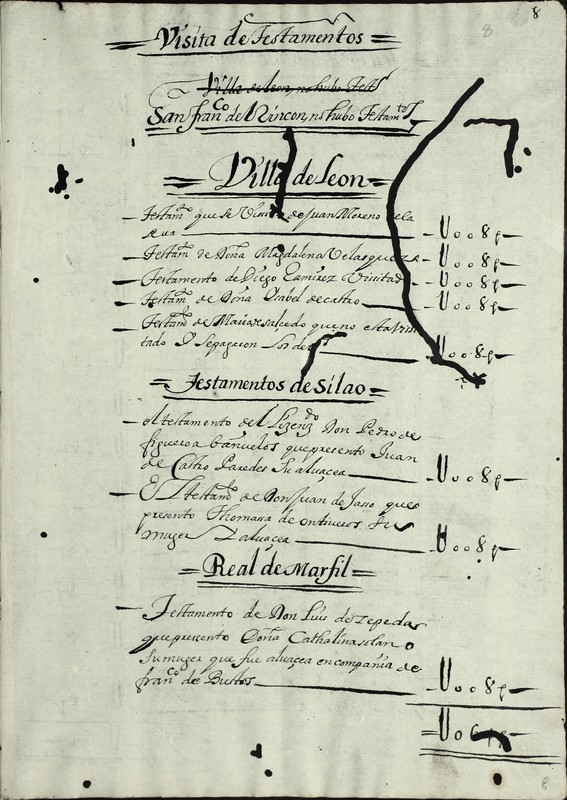 8
8
Visita de Testamentos
Villa de leon, no hubo Testº
San franco de l Rincon, no hubo Testamtos
Villa de leon
Testamto que se Visito de Juan Moreno dela
Rua U008p
Testamto de Doña Magdalena Velasquez U008p
Testamento de Diego Ramirez Visitado U008p
Testamto de Doña Ysabel de castro U008p
Testamto de Maria salcedo que no esta Visi
tado Y se pagaron los dros U008p
Testamentos de Silao
el testamento del Lizenzdo Don Pedro de
figueroa bañuelos que presento Juan
de Castro Paredes Su aluaçea U008p
El testamto de Don Juan de Jasso que
presento Thomasa de ontiueros Su
muger Y aluaçea U008p
Real de Marfil
Testamento de Don Luis de zepeda
que presento Doña Cathalina solano
Su muger que fue aluaçea en compañia de
franco de Bustos U008p
U06
8